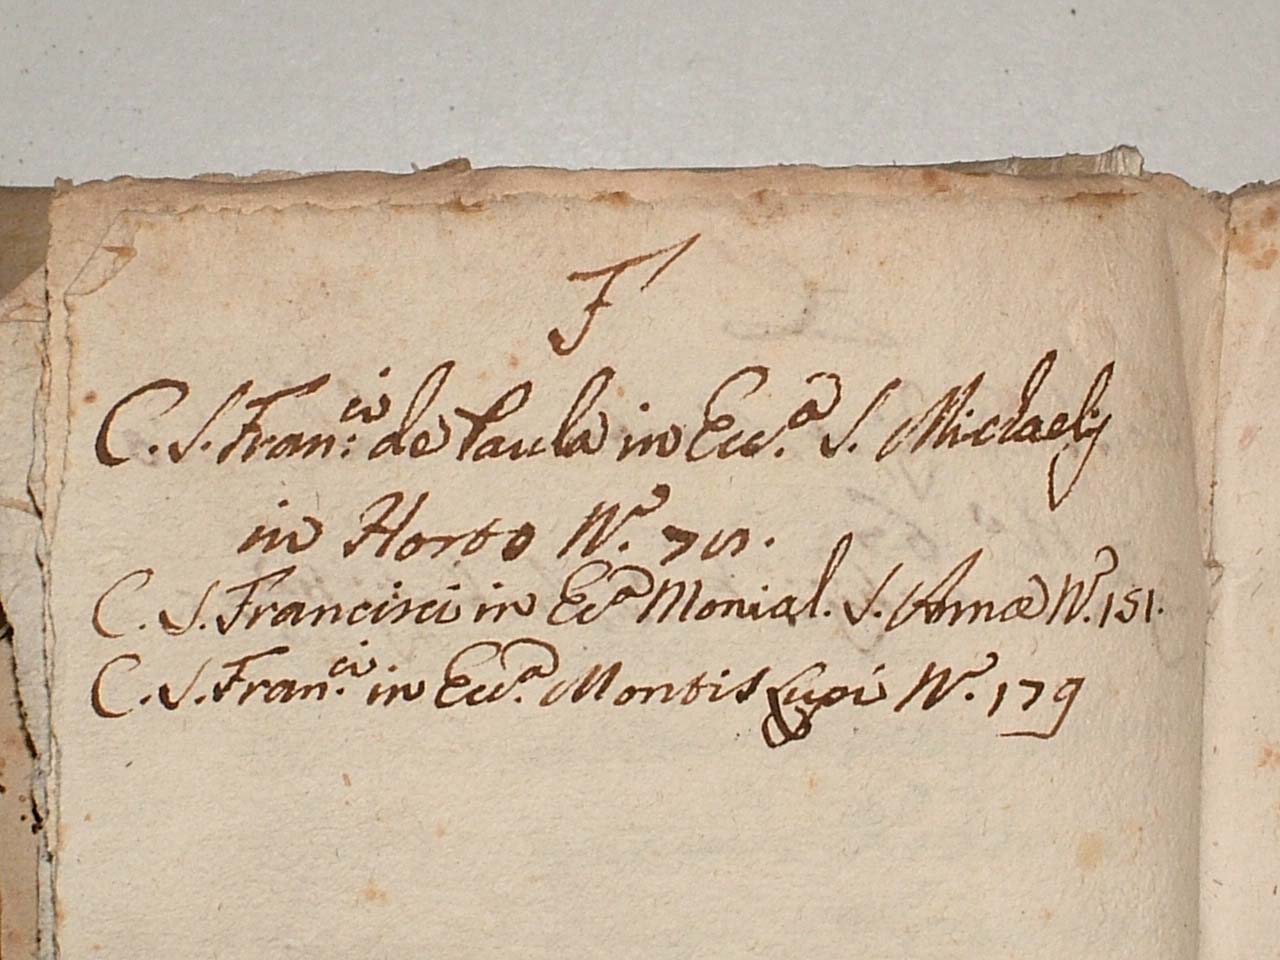 F
C. S. Fran.ci de Paula in Ecc.a S. Michaelis
in Horto N.o
C. S. Francisci in Ecc.a Monial. S. Annæ N.o 151.
C. S. Fran.ci in Ecc.a Montis Lupi N.o 179